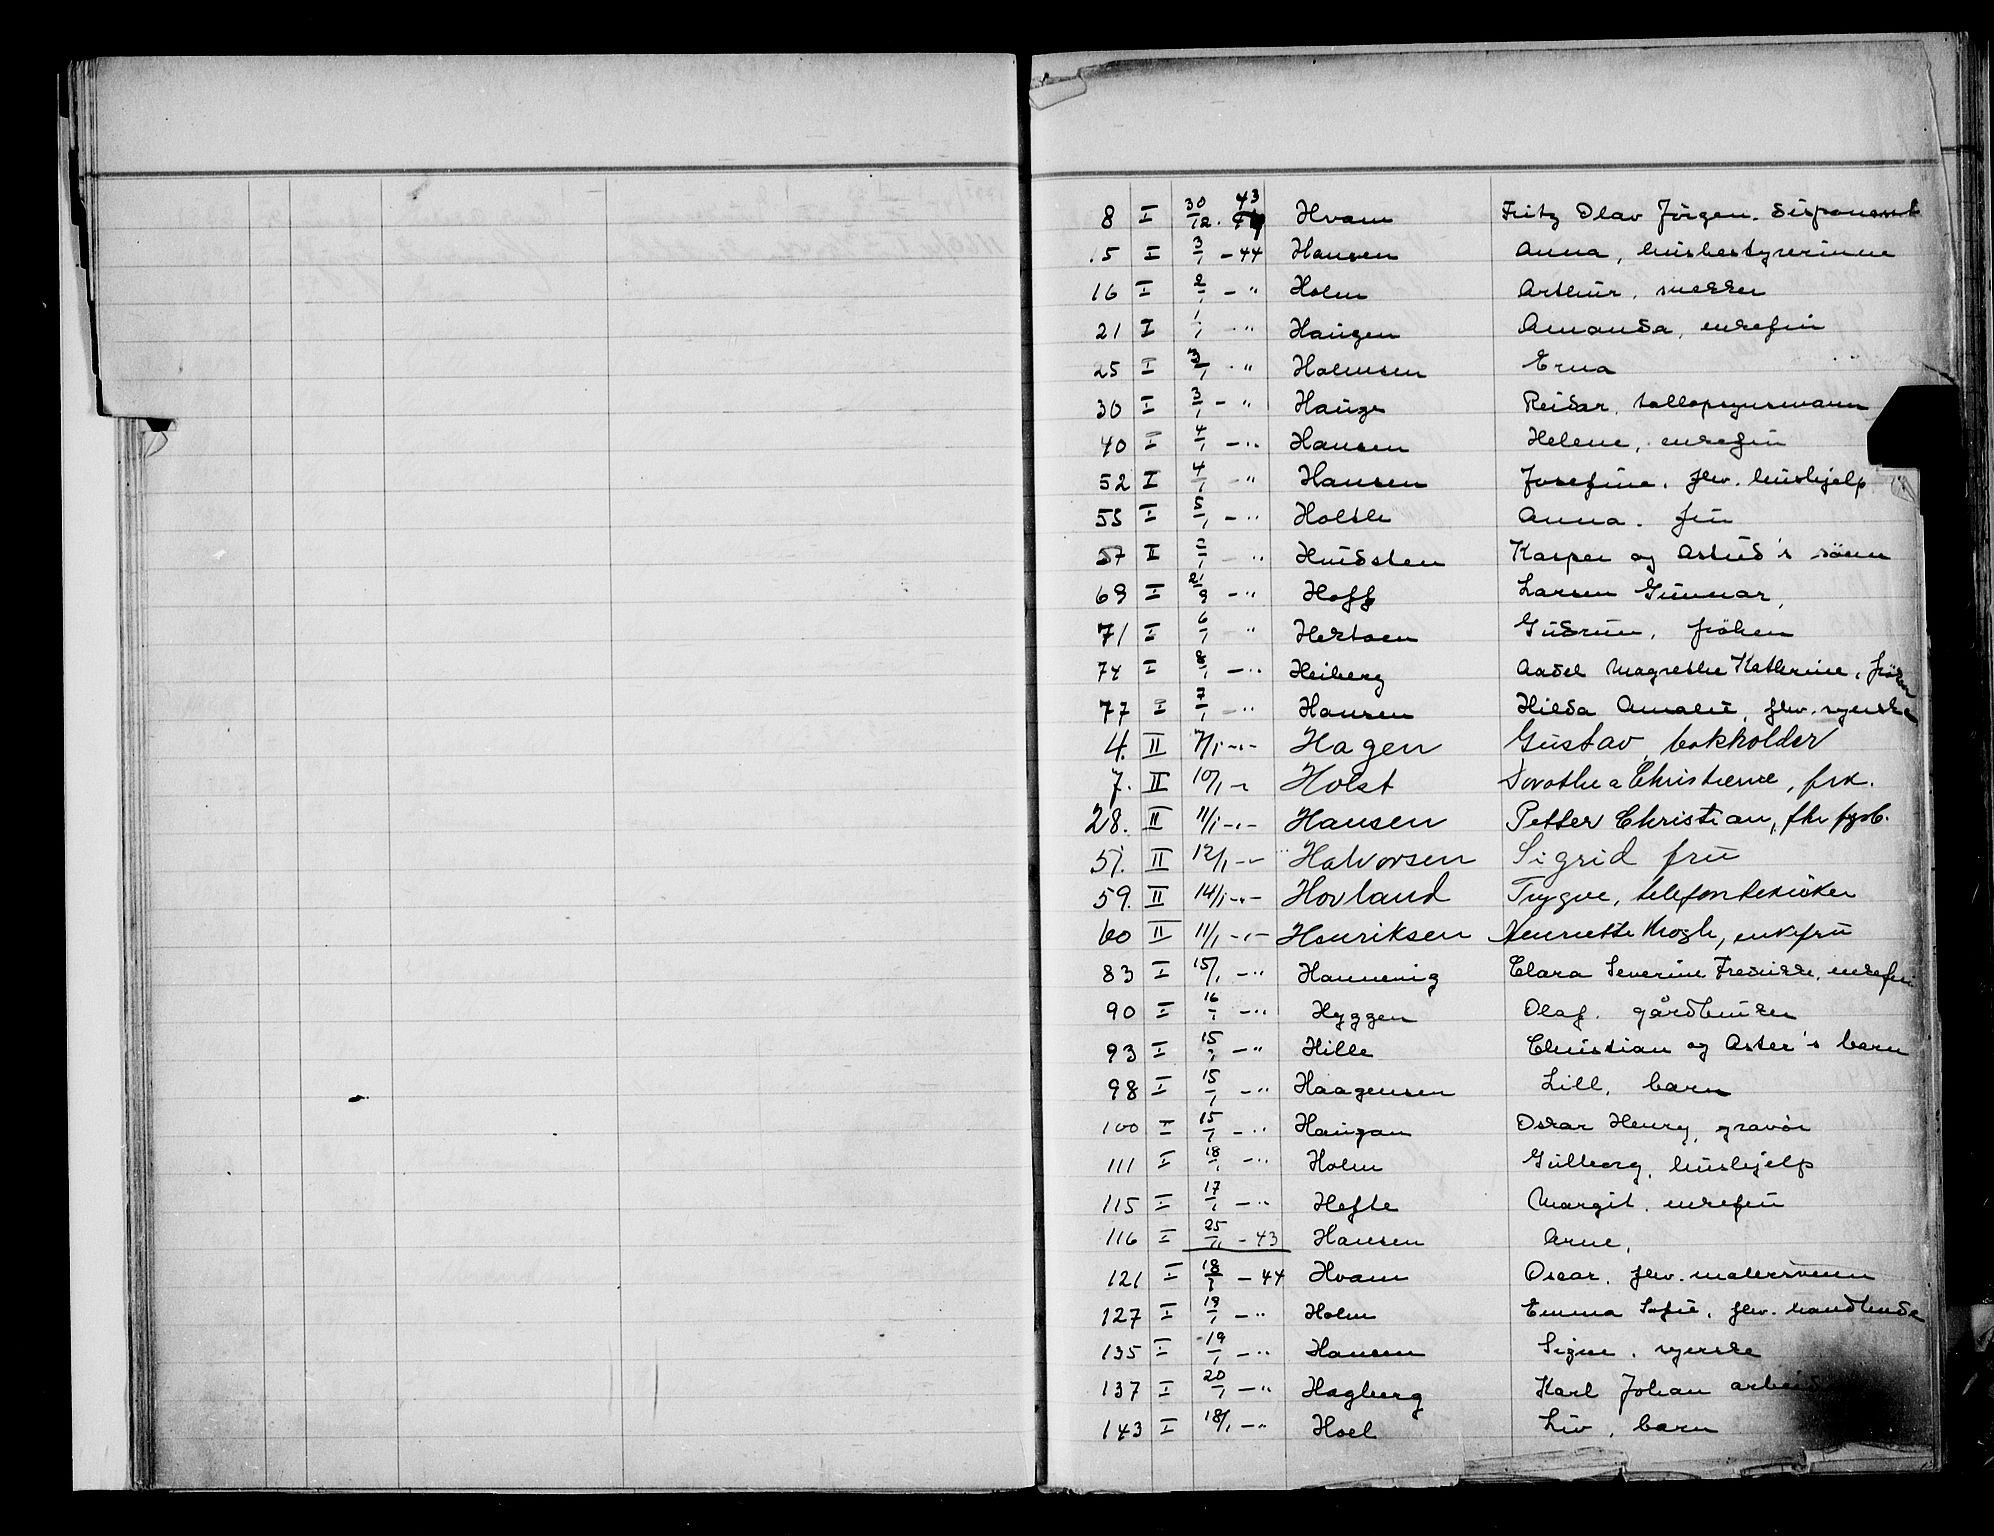 8 I 30/12. 43 Hvam Fritz Olav Jörgen. disponent
15 I 3/1 - 44 Hansen Anna, husbestyrerinne
16 I 2/1 - " Holm Arthur, snekker
21 I 1/1 - " Haugen Amanda, enkefru
25 I 3/1 - " Holmsen Erna
30 I 3/1 - " Hauge Reidar, tolloppsynsmann
40 I 4/1 - " Hansen Helene, enkefru
52 I 4/1 - " Hansen Josefine, fhv. hushjelp
55 I 5/1 - " Holtle Anna. fru
57 I /1 - " Huidsten Kasper og Astrid's sönn
69 I 21/9 - " Hoff Larsen Gunnar,
71 I 6/1 - " Hertsen Gudrun, fröken
74 I 8/1 - " Heiberg Aadel Magrethe Katherine, fröken
77 I 7/1 - " Hansen Hilda Amalie, fhv. syerske
4. II 7/1 - " - Hagen Gustav bokholder
7. II 10/1 - Holst Dorothea Christierne, frk.
28. II 11/1 - " - Hansen Petter Christian, fhv fyrb.
51. II 12/1 - " Halvorsen Sigrid fru
59. II 14/1 - " - Hovland Trygve, telefontekniker
60 II 11/1 - " - Henriksen Henriette Krogh, enkefru
83 I 15/1 - " Hannevig Clara Severine Fredrikke, enkefru
90 I 16/1 - " Hyggen Olaf. gårdbruker
93 I 15/1 - " Hille Christian og Aster's barn
98 I 15/1 - " Haagensen Lill, barn
100 I 15/1 - " Haugan Oskar Henry, gravör
111 I 18/1 - " Holm Gulborg, hushjelp
115 I 17/1 - " Hefte Margit, enkefru
116 I 25/11 - 43 Hansen Arne,
121 I 18/1 - 44 Hvam Oscar, fhv. malersvenn
127 I 19/1 - " Holm Emma Sofie, fhv. handlende
135 I 19/1 - " Hansen Signe, syerske
137 I 20/1 - " Hagberg Karl Johan
143 I 18/1 - " Hoel Liv, barn